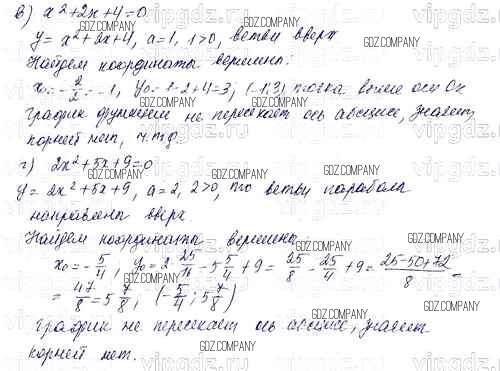 в) x²+2x+4=0
y = x²+2x+4, a=1, 1>0, ветви вверх
Найдем координаты вершины:
x₀=-2/2=-1, y₀=1-2+4=3, (-1;3) точка выше оси Ox
График функции не пересекает ось абсцисс, значит,
корней нет, ч.т.д.
г) 2x²+5x+9=0
y=2x²+5x+9, a=2, 2>0, то ветви параболы
направлены вверх
Найдем координаты вершины
x₀=-5/4, y₀=2·25/16-5·5/4+9=25/8-25/4+9=(25-50+72)/8=
=47/8=5 7/8, (-5/4; 5 7/8)
График не пересекает ось абсцисс, значит
корней нет.